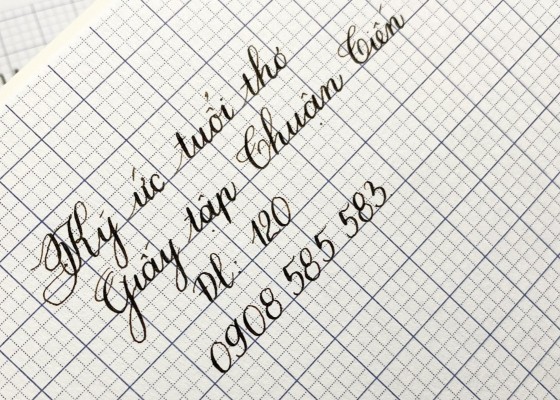 Ký ức tuổi thơ
Giấy tập Chuẩn Tiến
ĐL: 120
0908 585 583